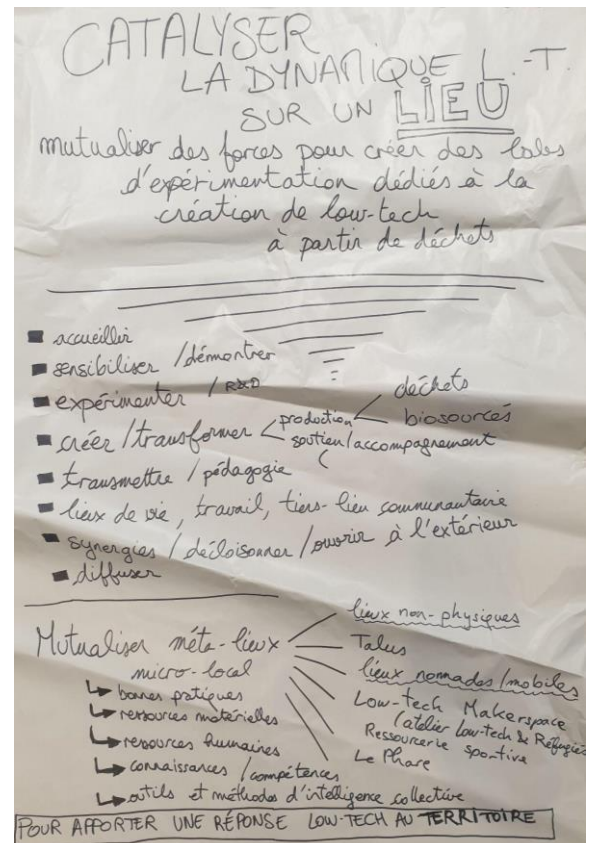 CATALYSER
LA DYNAMIQUE L.-T.
SUR UN LIEU
mutualiser des forces pour créer des labs
d'expérimentation dédiés à la
création de low-tech
à partir de déchets
accueillir
sensibiliser / démontrer
expérimenter / R&D
créer / transformer < production < déchets
biosourcés
soutien / accompagnement
transmettre / pédagogie
lieux de vie, travail, tiers-lieu communautaire
synergies / décloisonner / ouvrir à l'extérieur
diffuser
Mutualiser méta-lieux
micro-local
↳ bonnes pratiques
↳ ressources matérielles
↳ ressources humaines
↳ connaissances / compétences
↳ outils et méthodes d'intelligence collective
lieux non-physiques
Talus
lieux nommades / mobiles
Low-tech Makerspace
(atelier low-tech & Réfugiés
Ressourcerie sportive
Le Phare
POUR APPORTER UNE RÉPONSE LOW-TECH AU TERRITOIRE